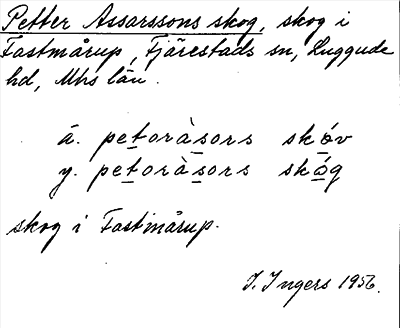 Petter Assarssons skog, skog i
Fastmårup, Fjärestads sn, Luggude
hd, Mhs län.
ä. petoràsors skóv
y. petoràsors skóg
skog i Fastmårup.
I. Ingers 1956.